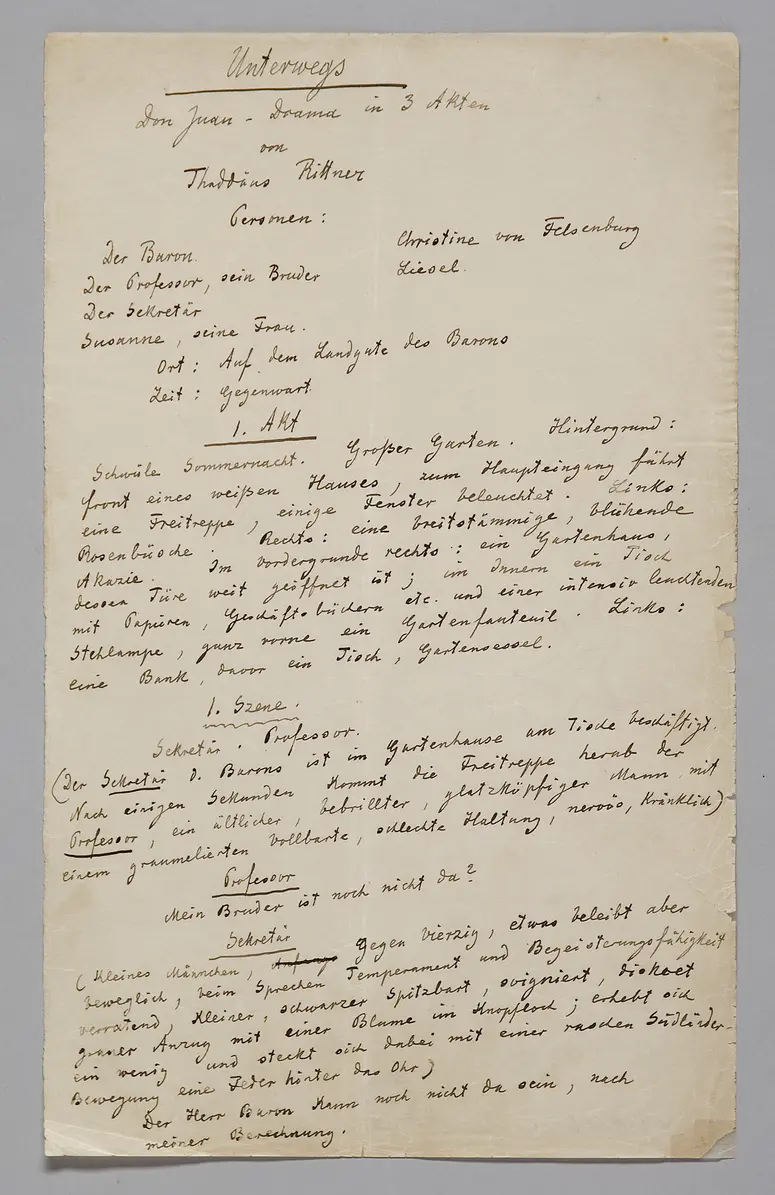 Unterwegs
Don Juan - Drama in 3 Akten
von
Thaddäus Rittner
Personen:
Der Baron.
Der Professor, sein Bruder
Der Sekretär
Susanne, seine Frau.
Christine von Felsenburg
Liesel.
Ort: Auf dem Landgute des Barons
Zeit: Gegenwart.
1. Akt
Schwüle Sommernacht. Großer Garten. Hintergrund:
front eines weißen Hauses, zum Haupteingang führt
eine Freitreppe, einige Fenster beleuchtet. Links:
Rosenbüsche. Rechts: eine breitstämmige, blühende
Akazie. Im Vordergrunde rechts: ein Gartenhaus,
dessen Türe weit geöffnet ist; im Innern ein Tisch
mit Papieren, Geschäftsbüchern etc. und einer intensiv leuchtenden
Stehlampe, ganz vorne ein Gartenfauteuil. Links:
eine Bank, davor ein Tisch, Gartensessel.
1. Szene.
Sekretär. Professor.
(Der Sekretär d. Barons ist im Gartenhause am Tische beschäftigt.
Nach einigen Sekunden kommt die Freitreppe herab der
Professor, ein ältlicher, bebrillter, glatzköpfiger Mann mit
einem graumelierten Vollbarte, schlechte Haltung, nervös, kränklich)
Professor
Mein Bruder ist noch nicht da?
Sekretär
(Kleines Männchen, Anfangs gegen Vierzig, etwas beleibt aber
beweglich, beim Sprechen Temperament und Begeisterungsfähigkeit
verratend, kleiner, schwarzer Spitzbart, soigniert, diskret
grauer Anzug mit einer Blume im Knopfloch; erhebt sich
ein wenig und steckt sich dabei mit einer raschen Südländer-
Bewegung eine Feder hinter das Ohr)
Der Herr Baron kann noch nicht da sein, nach
meiner Berechnung.